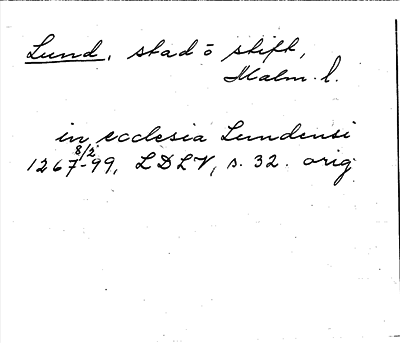 Lund, stad o stift,
Malm. l.
in ecclesia Lundensi
8/2
1267-99, LDLV, s. 32. orig